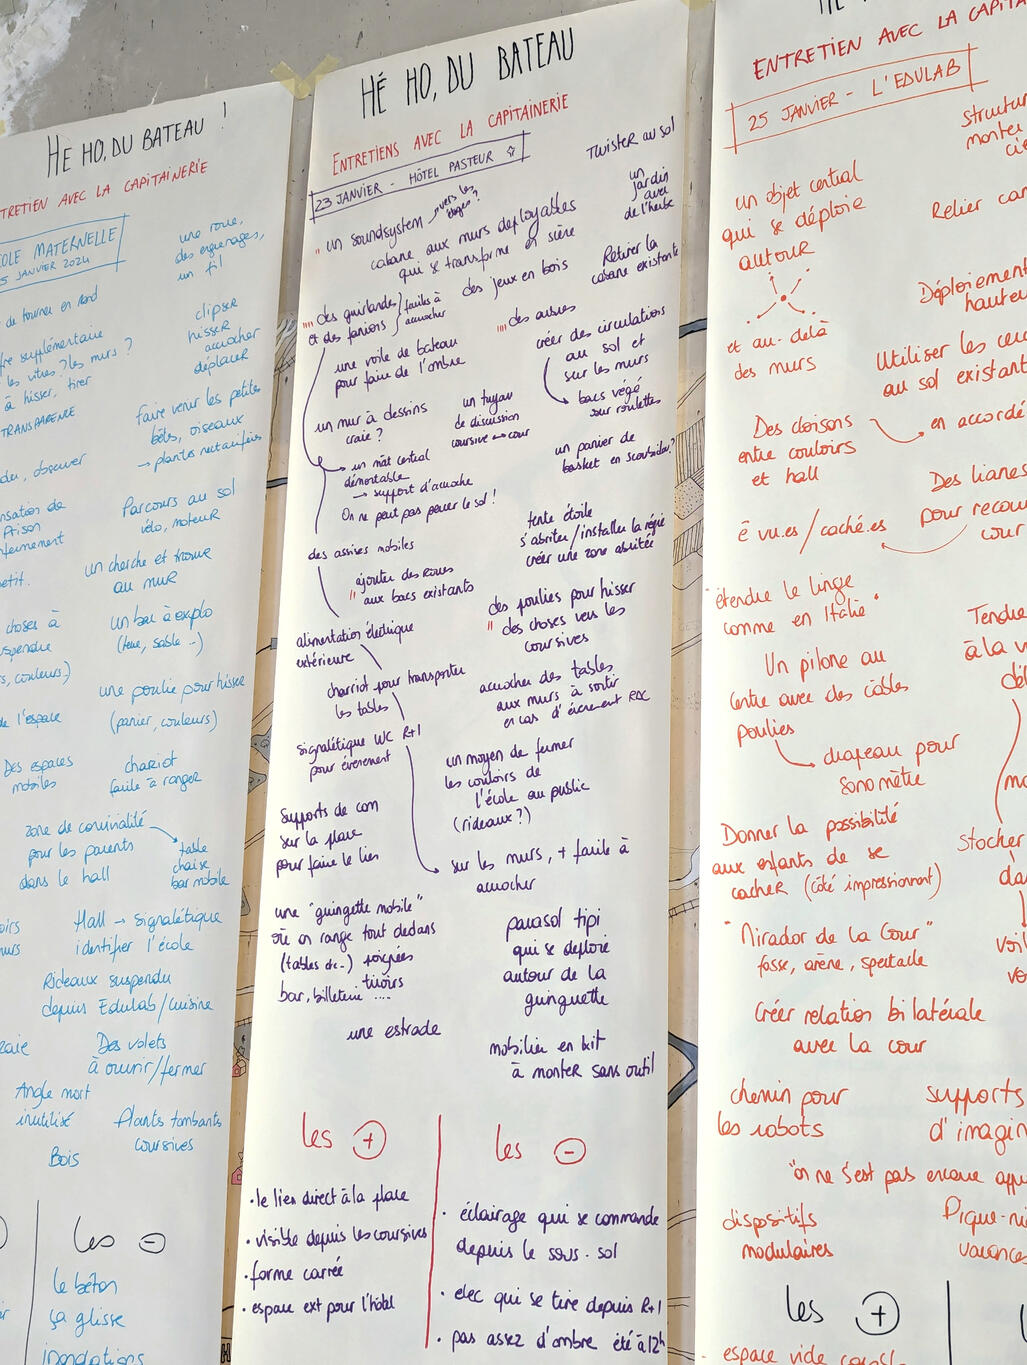 HE HO, DU BATEAU !
TRETIEN AVEC LA CAPITAiNERiE
COLE MATERNELLE
5 JANVIER 2024
une roue,
des engrenages,
un fil
de tourner en rond
clipser
hisser
accrocher
déplacer
fre supplémentaire
les vitres ? les murs ?
à hisser, tirer
TRANSPARENCE
Faire venir les petites
bêtes, oiseaux
→ plantes nectarifères
du, observer
Parcours au sol
vélo, moteur
nsation de
Prison
fermement
un cherche et trouve
au mur
petit.
choses à
uspendre
rs, couleurs..)
un bac à explo
(terre, sable ...)
une poulie pour hisser
(panier, couleurs)
de l'espace
Des espaces
mobiles
chariot
facile à ranger
zone de convivialité
pour les parents
dans le hall
table
chaise
bar mobile
oirs
murs
Hall → signalétique
identifier l'école
Rideaux suspendu
depuis Edulab/cuisine
raie
Des volets
à ouvrir/fermer
Angle mort
inutilisé
Plants tombants
coursives
Bois
les ⊖
le béton
ça glisse
inondations
HÉ HO, DU BATEAU
ENTRETIENS AVEC LA CAPITAINERIE
23 JANVIER - HÔTEL PASTEUR
TWISTER au sol
un
jardin
avec
de l'herbe
" un soundsystem → vers les
étages ?
cabane aux murs deployables
qui se transforme en scène
Retirer la
cabane existante
"" des guirlandes
et des fanions
faciles à
accrocher
des jeux en bois
"" des assises
une voile de bateau
pour faire de l'ombre
créer des circulations
au sol et
sur les murs
bacs végé
sur roulettes
un mur à dessins
craie ?
un tuyau
de discussion
coursive ↔ cour
un mât central
démontable
→ support d'accroche
On ne peut pas percer le sol !
un panier de
basket en scoubidou ?
des assises mobiles
tente étoile
s'abriter / installer la régie
créer une zone abritée
" ajouter des roues
aux bacs existants
des poulies pour hisser
" des choses vers les
coursives
alimentation électrique
extérieure
charriot pour transporter
les tables
accrocher des tables
aux murs à sortir
en cas d'évènement RDC
signalétique WC R+1
pour évènement
un moyen de fermer
les couloirs de
l'école au public
(rideaux ?)
Supports de com
sur la place
pour faire le lien
sur les murs, + facile à
accrocher
une "guingette mobile"
où on range tout dedans
(tables etc..) poignées
tiroirs
bar, billeterie ....
parasol tipi
qui se déploie
autour de la
guinguette
une estrade
mobilier en kit
à monter sans outil
les ⊕
• le lien direct à la place
• visible depuis les coursives
• forme carrée
• espace ext pour l'hôtel
les ⊖
• éclairage qui se commande
depuis le sous-sol
• elec qui se tire depuis R+1
• pas assez d'ombre été à 12h
ENTRETIEN AVEC LA CAPITA
25 JANVIER - L'EDULAB
Structur
monter
cie
un objet central
qui se déploie
autour
Relier
et au-delà
des murs
Déploiement
hauteu
Utiliser les
au sol existant
Des cloisons
entre couloirs
et hall
en accordé
Ê vu.es / caché.es
Des lianes
pour recou
cour
"étendre le linge
comme en Italie"
Tendre
à la v
Un pilone au
centre avec des câbles
poulies
drapeau pour
sonomètre
Donner la possibilité
aux enfants de se
cacher (côté impressionnant)
Stocker
da
"Mirador de la Cour"
fosse, arène, spectacle
voil
vo
Créer relation bilatérale
avec la cour
chemin pour
les robots
supports
d'imagin
"on ne s'est pas encore app
dispositifs
modulaires
Pique-ni
vacances
les ⊕
espace vide